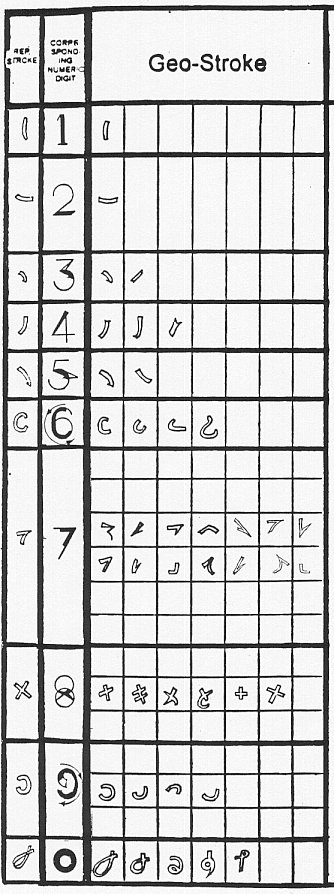 REP.
STROKE
CORRE
SPOND-
ING
NUMERIC
DIGIT
Geo-Stroke
1
2
3
4
5
6
7
8
9
0